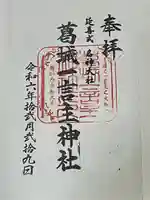 奉拝
延喜式名神大社
葛城一言主神社
令和六年十弐月弐拾九日